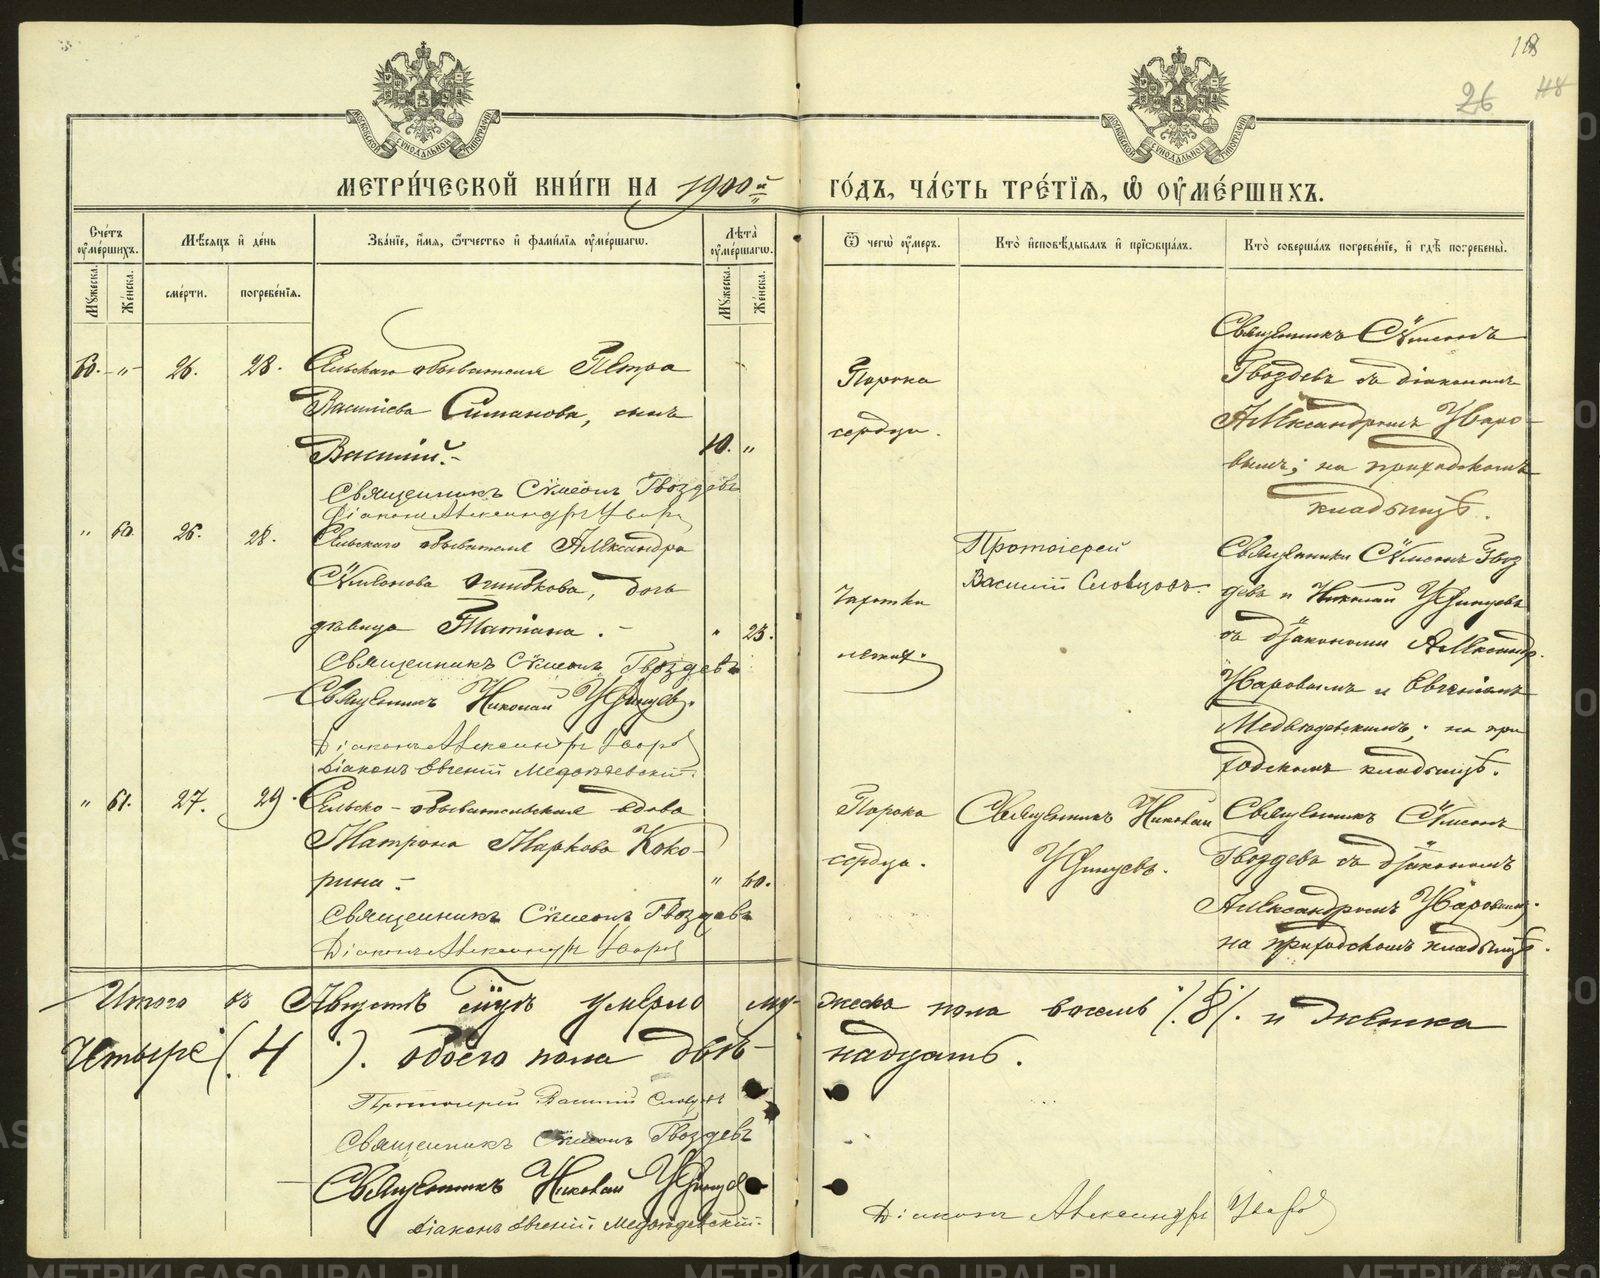 18
26
48
МЕТРИ́ЧЕСКОЙ КНИ́ГИ НА 1900й ГО́ДЪ, ЧА́СТЬ ТРЕ́ТІѦ, Ѡ҆ ОУ҆МЕ́РШИХЪ.
Сче́тъ оу҆ме́ршихъ.
Мѣ́сяцъ и҆ де́нь
Зва́нїе, и҆́мѧ, ѻ҆́тчество и҆ фами́лїѧ оу҆ме́ршагѡ.
Лѣ́та оу҆ме́ршагѡ.
Ѿ чегѡ̀ оу҆́меръ.
Кто̀ и҆сповѣ́дывалъ и҆ прїѡбща́лъ.
Кто̀ соверша́лъ погребе́нїе, и҆ гдѣ̀ погребены̀.
Мꙋ́жеска.
Же́нска.
сме́рти.
погребе́нїѧ.
Мꙋ́жеска.
Же́нска.
60. - " - 26. 28.
Сельскаго обывателя Петра
Василіева Симанова, сынъ
Василій. -
10. "
Священникъ Сѵмеонъ Гвоздевъ
Діаконъ Александръ Уваровъ
Порока
сердца.
Священникъ Сѵмеонъ
Гвоздевъ съ діакономъ
Александромъ Уваро-
вымъ; на приходскомъ
кладбищѣ.
" 60. 26. 28.
Сельскаго обывателя Александра
Сѵмеонова дочь
дѣвица Татіана. -
" 23.
Священникъ Сѵмеонъ Гвоздевъ
Священникъ Николай Удинцевъ.
Діаконъ Александръ Уваровъ
Діаконъ Евгеній Медвѣдевскій.
Чахотка
Протоіерей
Василій Словцовъ.
Священники Сѵмеонъ Гвоз
девъ и Николай Удинцевъ
съ діаконами Александр.
Уваровымъ и Евгеніемъ
Медвѣдевскимъ; на при
ходскомъ кладбищѣ.
" 61. 27. 29.
Сельско-обывательская вдова
Матрона Маркова Коко-
рина. -
" 60.
Священникъ Сѵмеонъ Гвоздевъ
Діаконъ Александръ Уваровъ
Порока
сердца.
Священникъ Николай
Удинцевъ.
Священникъ Сѵмеонъ
Гвоздевъ съ діакономъ
Александромъ Уваровымъ;
на приходскомъ кладбищѣ.
Итого въ Августѣ м-цѣ умерло му- жеска пола восемь /.8/. и женска
четыре (.4.). обоего пола двѣ- надцать.
Протоіерей Василій Словцовъ
Священникъ Сѵмеонъ Гвоздевъ
Священникъ Николай Удинцевъ
Діаконъ Евгеній Медвѣдевскій.
Діаконъ Александръ Уваровъ
METRIKI.GASO-URAL.RU